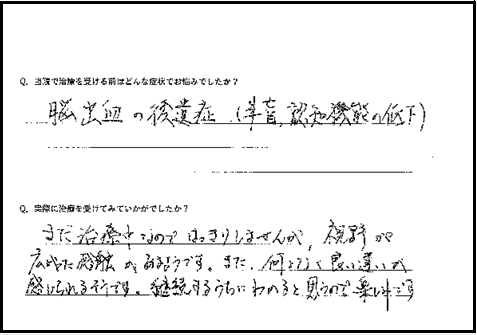 Q. 当院で治療を受ける前はどんな症状でお悩みでしたか？
脳出血の後遺症（半盲、認知機能の低下）
Q. 実際に治療を受けてみていかがでしたか？
まだ治療中なのではっきりしませんが、視野が
広がった感触があるようです。また、何となく良い違いが
感じられるそうです。継続するうちにわかると思うので楽しみです